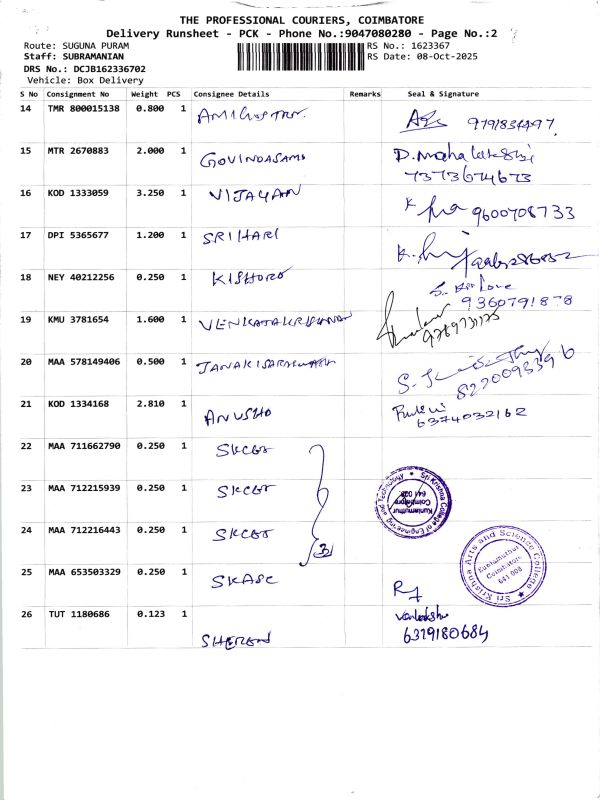 THE PROFESSIONAL COURIERS, COIMBATORE
Delivery Runsheet - PCK - Phone No.:9047080280 - Page No.:2
Route: SUGUNA PURAM
RS No.: 1623367
Staff: SUBRAMANIAN
RS Date: 08-Oct-2025
DRS No.: DCJB162336702
Vehicle: Box Delivery
S No Consignment No Weight PCS Consignee Details Remarks Seal & Signature
14 TMR 800015138 0.800 1 9791834497
15 MTR 2670883 2.000 1 GOVINDASAMI D. Maha
7373674673
16 KOD 1333059 3.250 1 VIJAYAN 9600708733
17 DPI 5365677 1.200 1 SRIHARI
18 NEY 40212256 0.250 1 KISHORE
9360791878
19 KMU 3781654 1.600 1 VENKATAKRISHNAN
20 MAA 578149406 0.500 1 JANAKISARASWATHI
8220098396
21 KOD 1334168 2.810 1 ANUSHO
6374032162
22 MAA 711662790 0.250 1 SKCET
23 MAA 712215939 0.250 1 SKCET
Sri Krishna College of Engineering and Technology
Kuniamuthur
Coimbatore
641 008
24 MAA 712216443 0.250 1 SKCET 3
Sri Krishna Arts and Science College
Kuniamuthur
Coimbatore
641 008
25 MAA 653503329 0.250 1 SKASC
26 TUT 1180686 0.123 1
6379180684